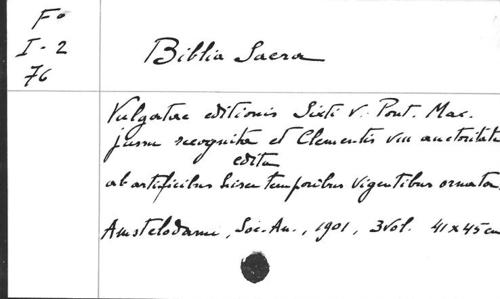 Fº
I-2
76
Biblia Sacra
Vulgatae editionis Sixti V. Pont. Mac.
jussu recognita et Clementis VIII auctoritate
edita
ab artificibus huius temporibus vigentibus ornata.
Amstelodami, Soc. An., 1901, 3 vol. 41x45 cm